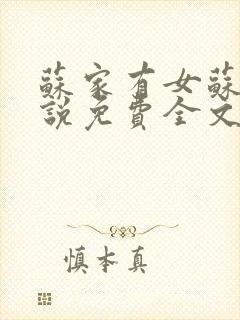 蘇家有女蘇
說免費全文
慎本真